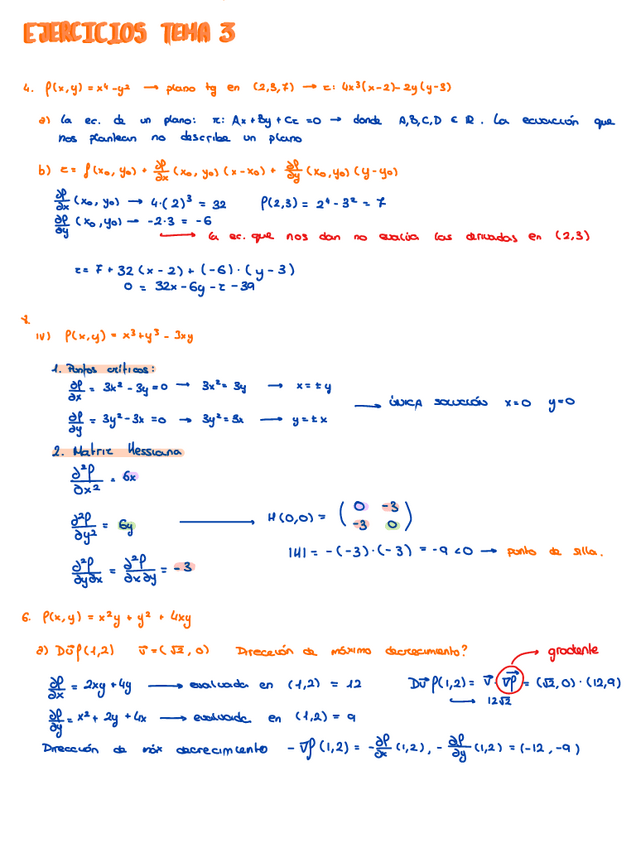 EJERCICIOS TEMA 3
4. f(x,y) = x⁴-y² → plano tg en (2,3,7) → z: 4x³(x-2)-2y(y-3)
a) la ec. de un plano: π: Ax + By + Cz = 0 → donde A,B,C,D ∈ ℝ. La ecuación que
nos plantean no describe un plano
b) z = f(x₀, y₀) + ∂f/∂x (x₀, y₀) (x-x₀) + ∂f/∂y (x₀, y₀) (y-y₀)
∂f/∂x (x₀, y₀) → 4·(2)³ = 32 f(2,3) = 2⁴ - 3² = 7
∂f/∂y (x₀, y₀) → -2·3 = -6
→ la ec. que nos dan no evalúa las derivadas en (2,3)
z = 7 + 32 (x-2) + (-6)·(y-3)
0 = 32x - 6y - z - 39
iv) f(x,y) = x³+y³ - 3xy
1. Puntos críticos:
∂f/∂x = 3x² - 3y = 0 → 3x² = 3y → x = ± y
→ ÚNICA SOLUCIÓN x=0 y=0
∂f/∂y = 3y² - 3x = 0 → 3y² = 3x → y = ± x
2. Matriz Hessiana
∂²f/∂x² = 6x
∂²f/∂y² = 6y → H(0,0) = ( 0 -3
-3 0 )
|H| = -(-3)·(-3) = -9 < 0 → punto de silla.
∂²f/∂y∂x = ∂²f/∂x∂y = -3
6. f(x,y) = x²y + y² + 4xy
a) Dv⃗f(1,2) v⃗ = (√2, 0) Dirección de máximo decrecimiento?
→ gradiente
∂f/∂x = 2xy + 4y → evaluada en (1,2) = 12 Dv⃗f(1,2) = v⃗ · ∇f = (√2, 0)·(12,9)
→ 12√2
∂f/∂y = x² + 2y + 4x → evaluada en (1,2) = 9
Dirección de máx decrecimiento -∇f(1,2) = -∂f/∂x (1,2), -∂f/∂y (1,2) = (-12, -9)